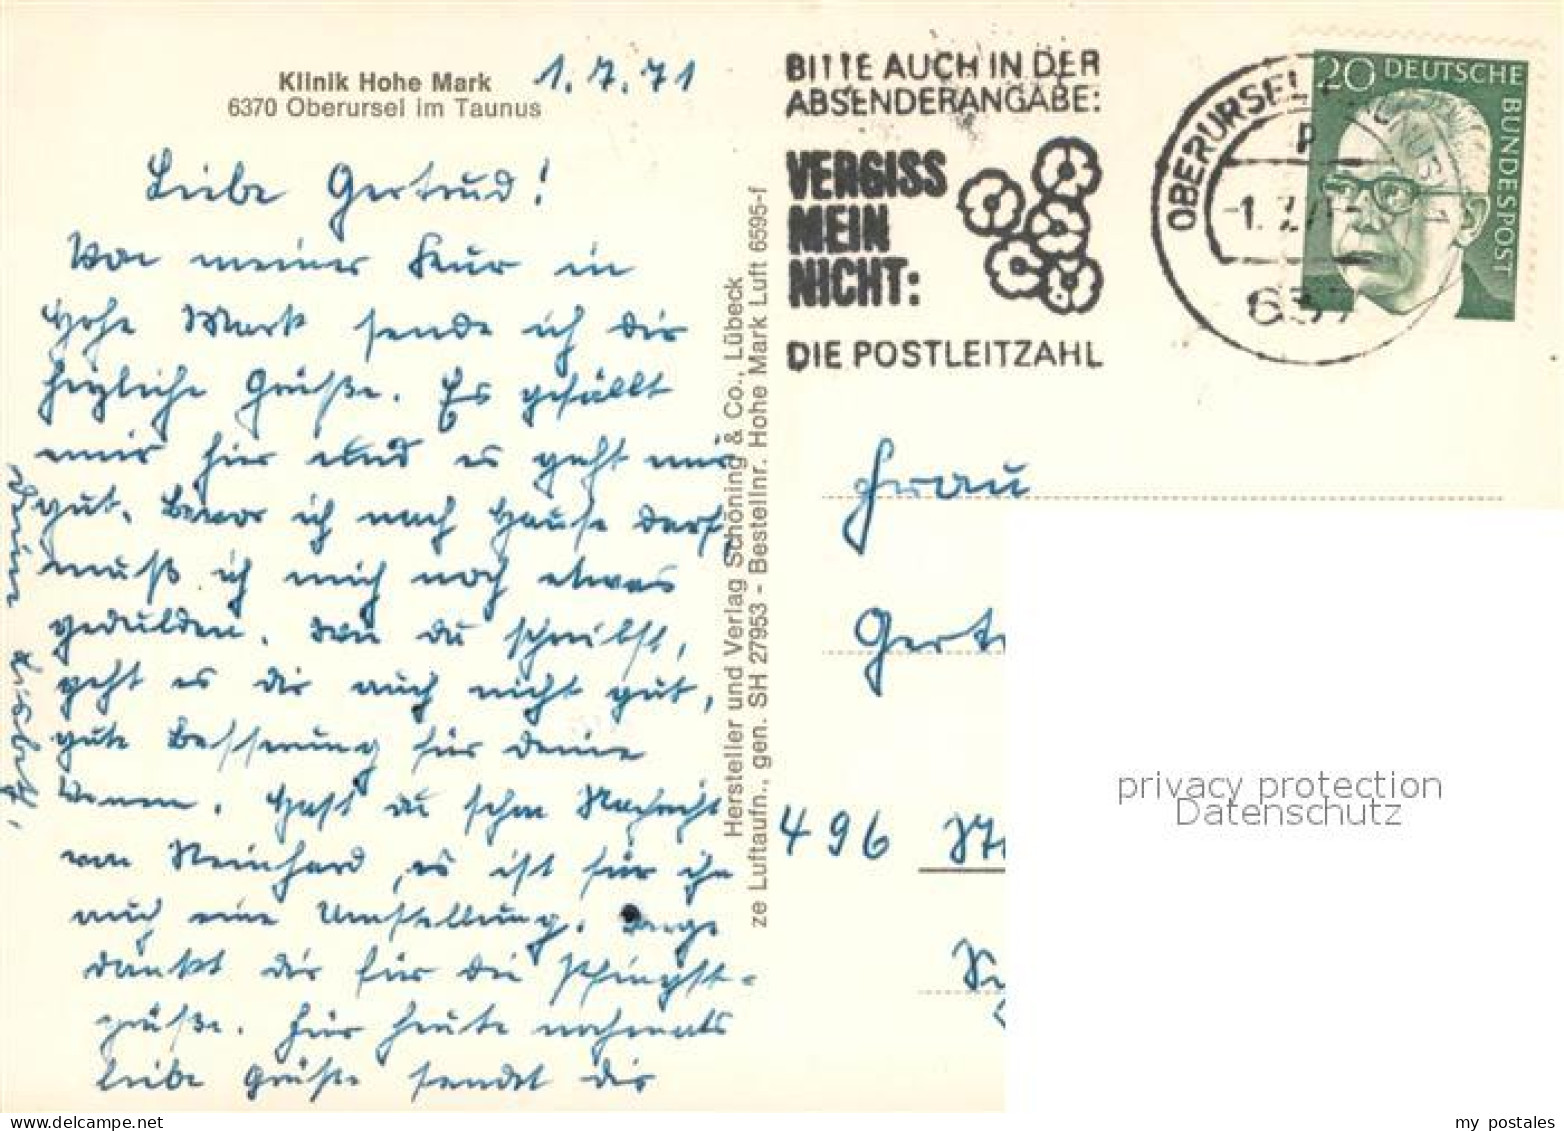 Klinik Hohe Mark
6370 Oberursel im Taunus
1.7.71
Liebe Gertrud!
Von meiner Kur in
Hohe Mark sende ich dir
herzliche Grüße. Es gefällt
mir hier und es geht mir
gut. Bevor ich nach Hause darf,
muß ich mich noch etwas
gedulden. Wie du schreibst,
geht es dir auch nicht gut,
gute Besserung für deine
Venen. Hast du schon Nachricht
von Reinhard, es ist für ihn
auch eine Umstellung.
dankt dir für die Pfingst-
grüße. Für heute nochmals
liebe Grüße sendet dir
Deine Lisbeth.
Hersteller und Verlag Schöning & Co., Lübeck
ze Luftaufn., gen. SH 27953 - Bestellnr. Hohe Mark Luft 6595-f
BITTE AUCH IN DER
ABSENDERANGABE:
VERGISS
MEIN
NICHT:
DIE POSTLEITZAHL
OBERURSEL TAUNUS 1
-1.7.71-
637
20 DEUTSCHE BUNDESPOST
Frau
Gertr
496
privacy protection
Datenschutz
my postales